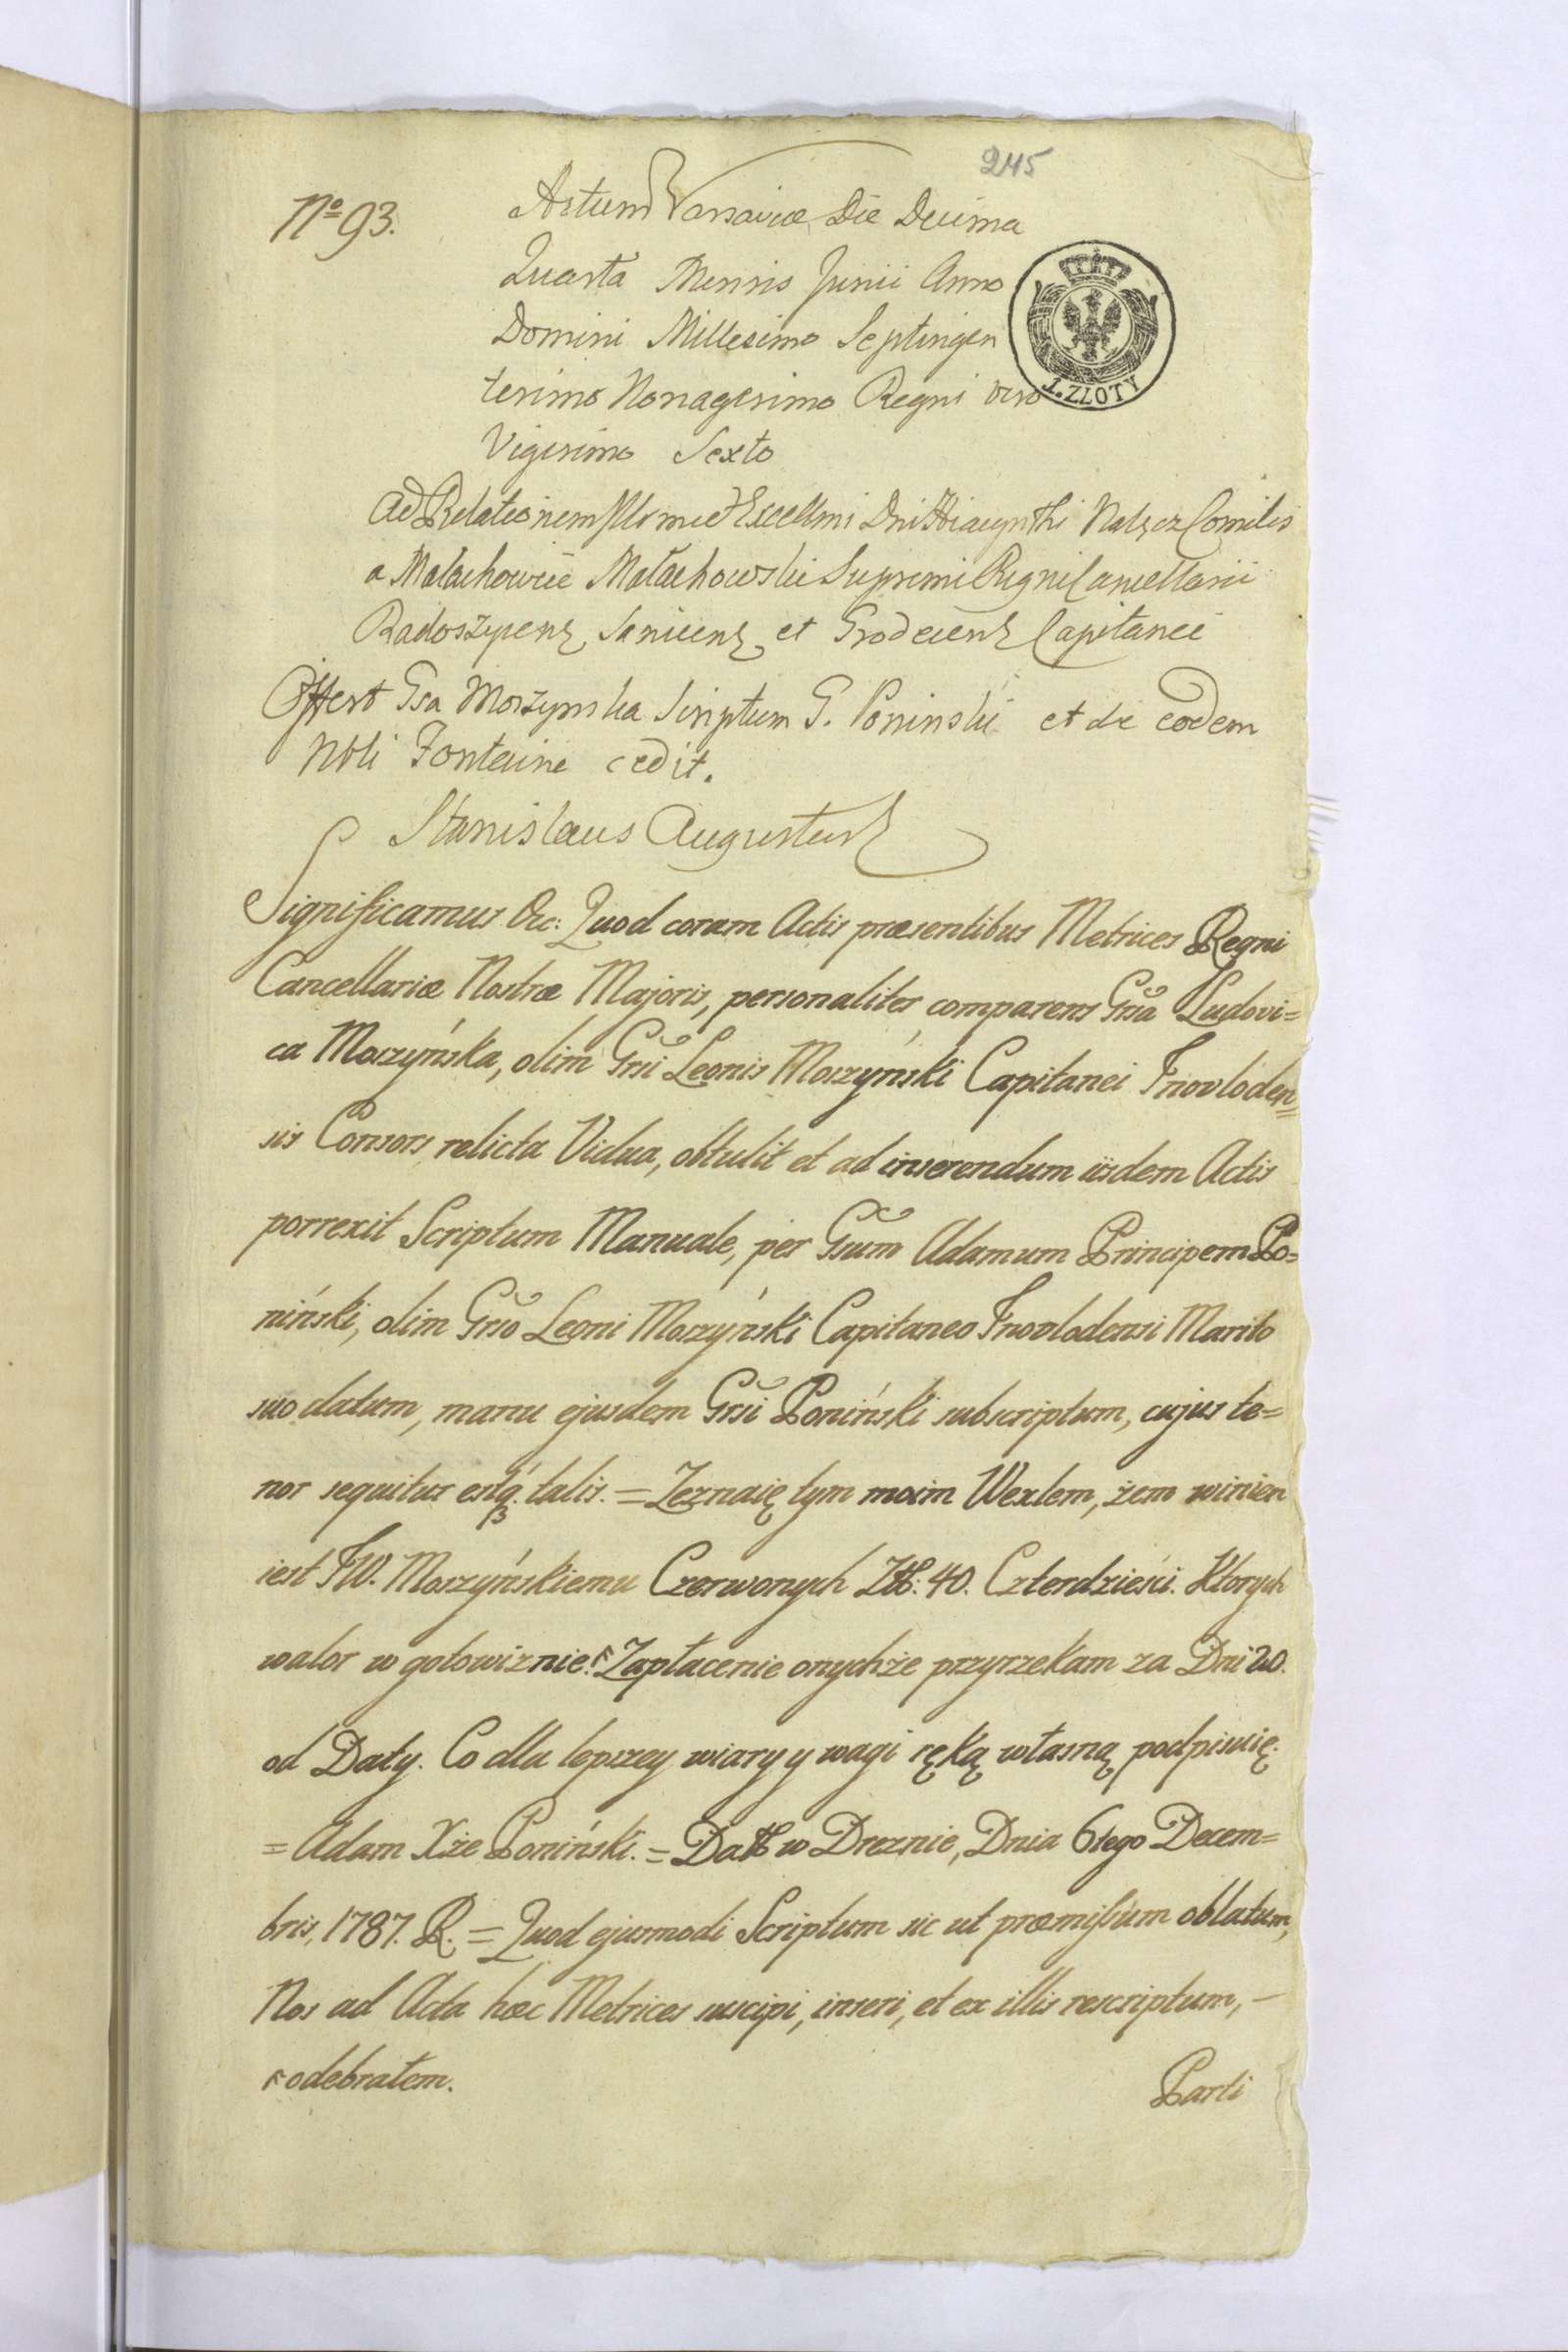 245
Nº 93.
Actum Varsaviæ Die Decima
Quarta Mensis Junii Anno
Domini Millesimo Septingen
tesimo Nonagesimo Regni vero
Vigesimo Sexto
1. ZŁOTY
Ad Relationem Illrmi et Excellmi Dni Hiacynthi Nałęcz Comitis
a Małachowice Małachowski Supremi Regni Cancellarii
Radoszycen, Sanicen, et Grodecen Capitanei
Offert Gsa Moszynska Scriptum G. Poninski et de eodem
Nbli Fontaine cedit.
Stanislaus Augustus
Significamus &c: Quod coram Actis præsentibus Metrices Regni
Cancellariæ Nostræ Majoris, personaliter comparens Grsa Ludovi=
ca Moszyńska, olim Grsi Leonis Moszyński Capitanei Inovloden=
sis Consors relicta Vidua, obtulit et ad inserendum iisdem Actis
porrexit Scriptum Manuale, per Gsum Adamum Principem Po=
niński, olim Grso Leoni Moszyński Capitaneo Inovlodensi Marito
suo datum, manu ejusdem Grsi Poniński subscriptum, cujus te=
nor sequitur estq. talis. = Zeznaię tym moim Wexlem, żem winien
iest JW. Moszyńskiemu Czerwonych Zł: 40. Czterdzieści. Ktorych
walor w gotowiznie. Zapłacenie onychże przyrzekam za Dni 20.
od Daty. Co dla lepszey wiary y wagi ręką własną podpisuię.
= Adam Xże Poniński. = Datt w Dreznie, Dnia 6tego Decem=
bris, 1787. R. = Quod ejusmodi Scriptum sic ut præmissum oblatum,
Nos ad Acta hæc Metrices suscipi, inseri, et ex illis rescriptum, -
odebrałem.
Parti